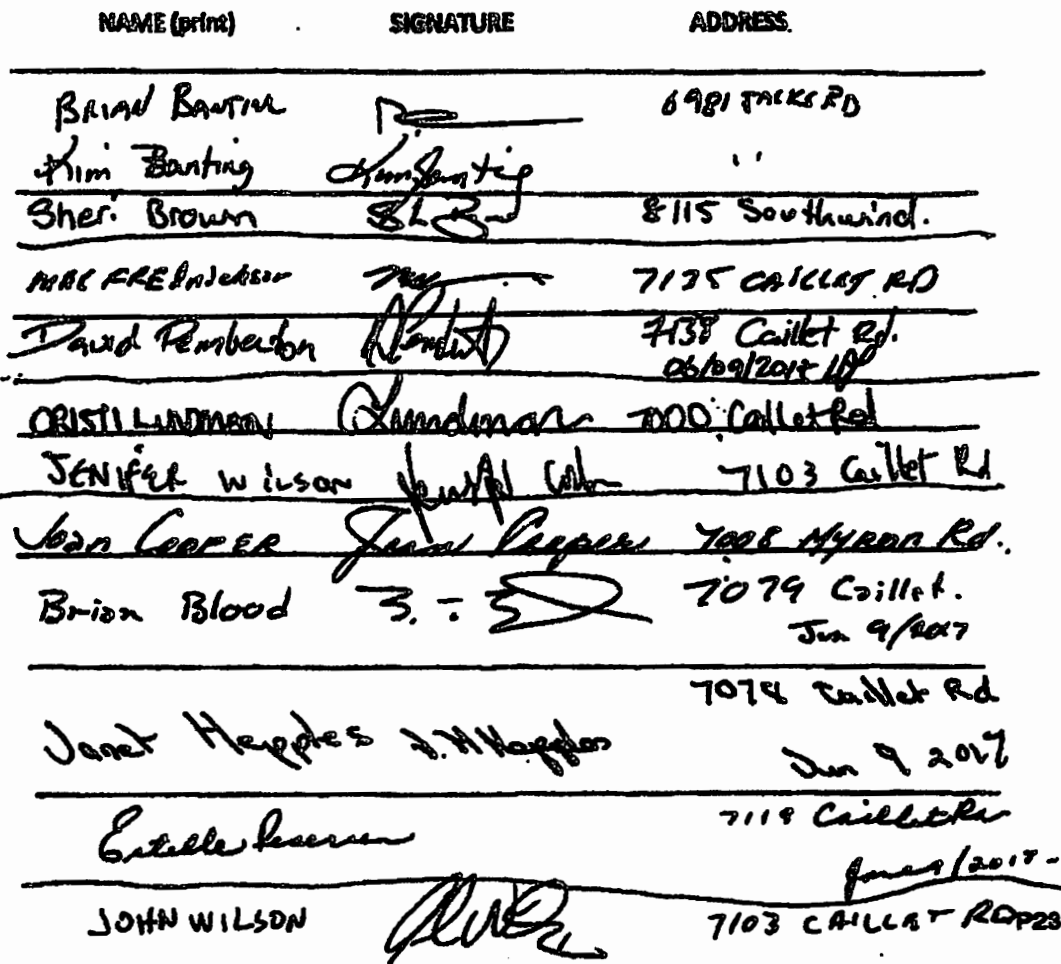 NAME (print) SIGNATURE ADDRESS.
BRIAN 6981 RD
Kim Banting Kim Banting ''
Sheri Brown 8115 Southwind.
7135 CAILLET RD
David Pemberton 7138 Caillet Rd.
06/09/2017
CRISTI LUNDMAN Lundman 7000 Caillet Rd
JENIFER WILSON 7103 Caillet Rd
Joan COOPER Joan Cooper 7008 MYRON Rd.
Brian Blood 7079 Caillet.
Jun 9/2017
7078 Caillet Rd
Janet Hepples J.M Hepples
Jun 9 2017
Estelle Caillet Rd
JOHN WILSON 7103 CAILLET RD P23